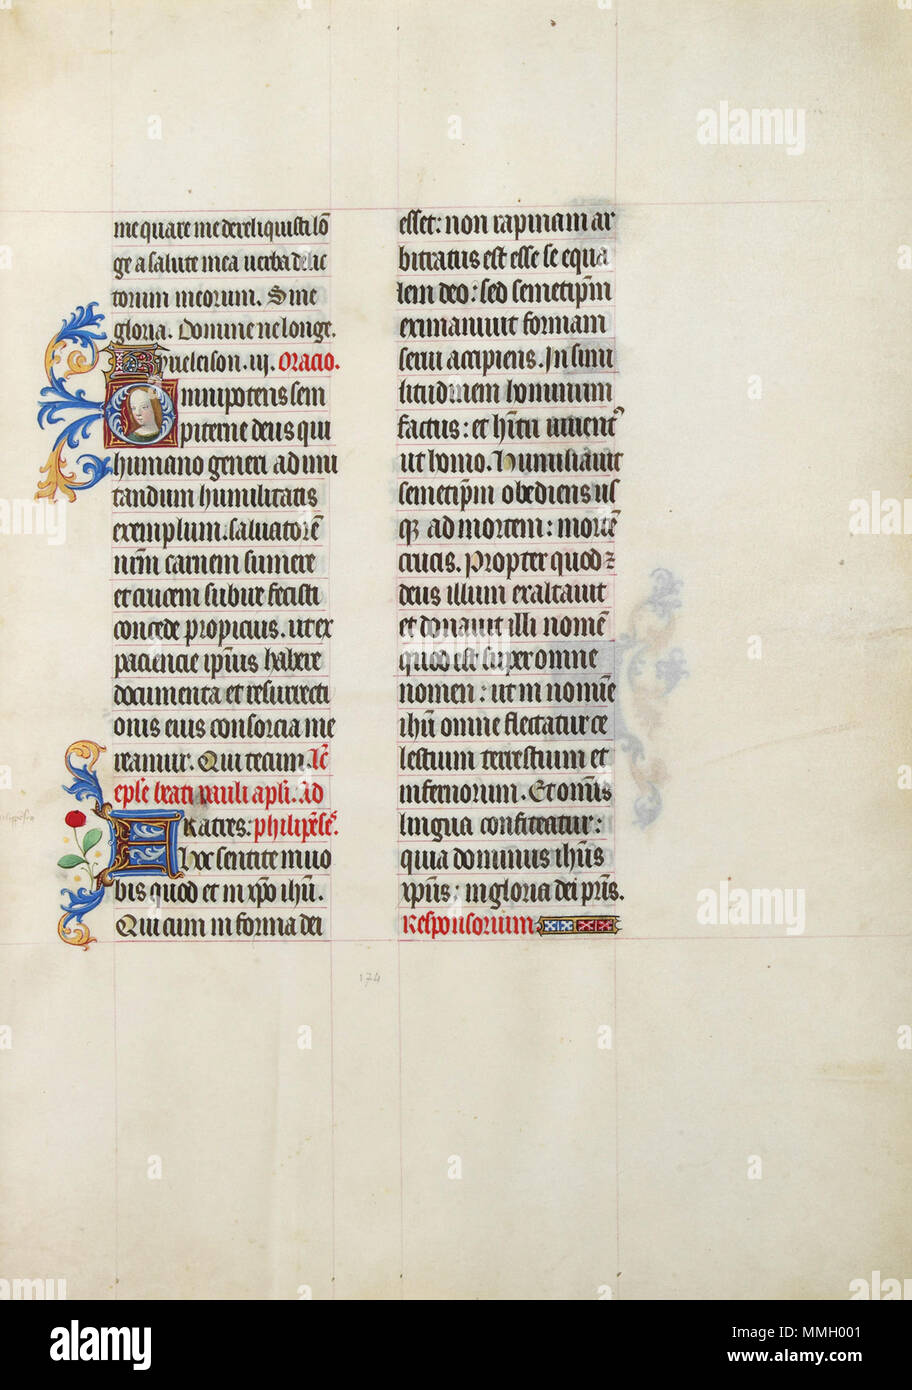 me quare me dereliquisti lo᷃
ge a salute mea uerba delic
torum meorum. Sine
gloria. Domine ne longe.
Kyrieleison. iij. Oracio.
Omnipotens sem
piterne deus qui
humano generi ad imi
tandum humilitatis
exemplum. saluatorē
nr̄m carnem sumere
et crucem subire fecisti
concede propicius. ut et
paciencie ip̄ius habere
documenta et resurrecti
onis eius consorcia me
reamur. Qui tecum. Lc̄
ep̄le beati pauli ap̄li. ad
FRatres: philipēse᷒.
Hoc sentite in uo
bis quod et in xp̄o ih̄u.
Qui cum in forma dei
esset: non rapinam ar
bitratus est esse se equa
lem deo: sed semetip̄m
exinaniuit formam
serui accipiens. In simi
litudinem hominum
factus: et h̄itu inuent᷒
ut homo. Humiliauit
semetip̄m obediens us
qꝫ ad mortem: mortē
crucis. Propter quod ⁊
deus illum exaltauit
et donauit illi nomē
quod est super omne
nomen: ut in nomīe
ih̄u omne flectatur ce
lestium terrestrium et
infernorum. Et om̄is
lingua confiteatur:
quia dominus ih̄us
xp̄us: in gloria dei pr̄is.
Responsorium.
174
alamy
alamy
Image ID: MMH001
www.alamy.com